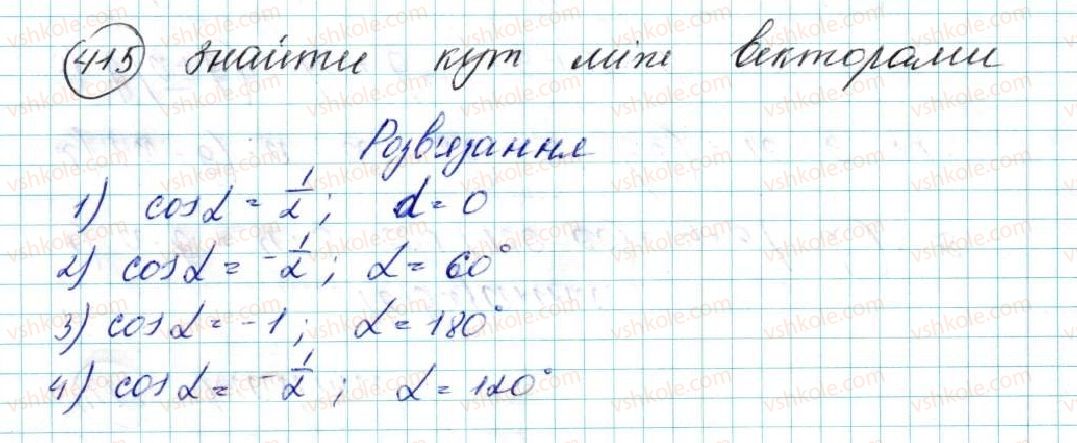 415 Знайти кут між векторами
Розв'язання
1) cos α = 1/2; α = 0
2) cos α = -1/2; α = 60°
3) cos α = -1; α = 180°
4) cos α = -1/2; α = 120°
vshkole.com